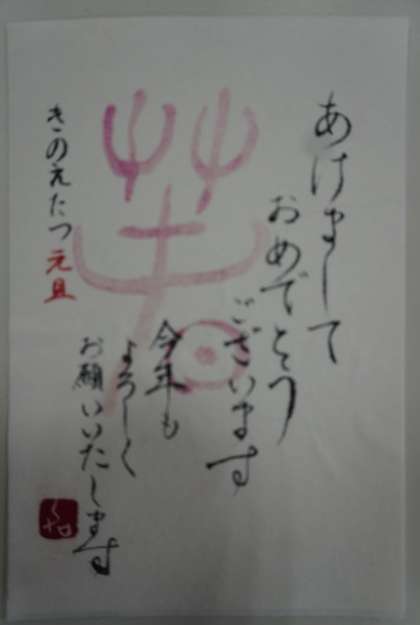 あけまして
おめでとう
ございます
今年も
よろしく
お願いいたします
きのえたつ元旦